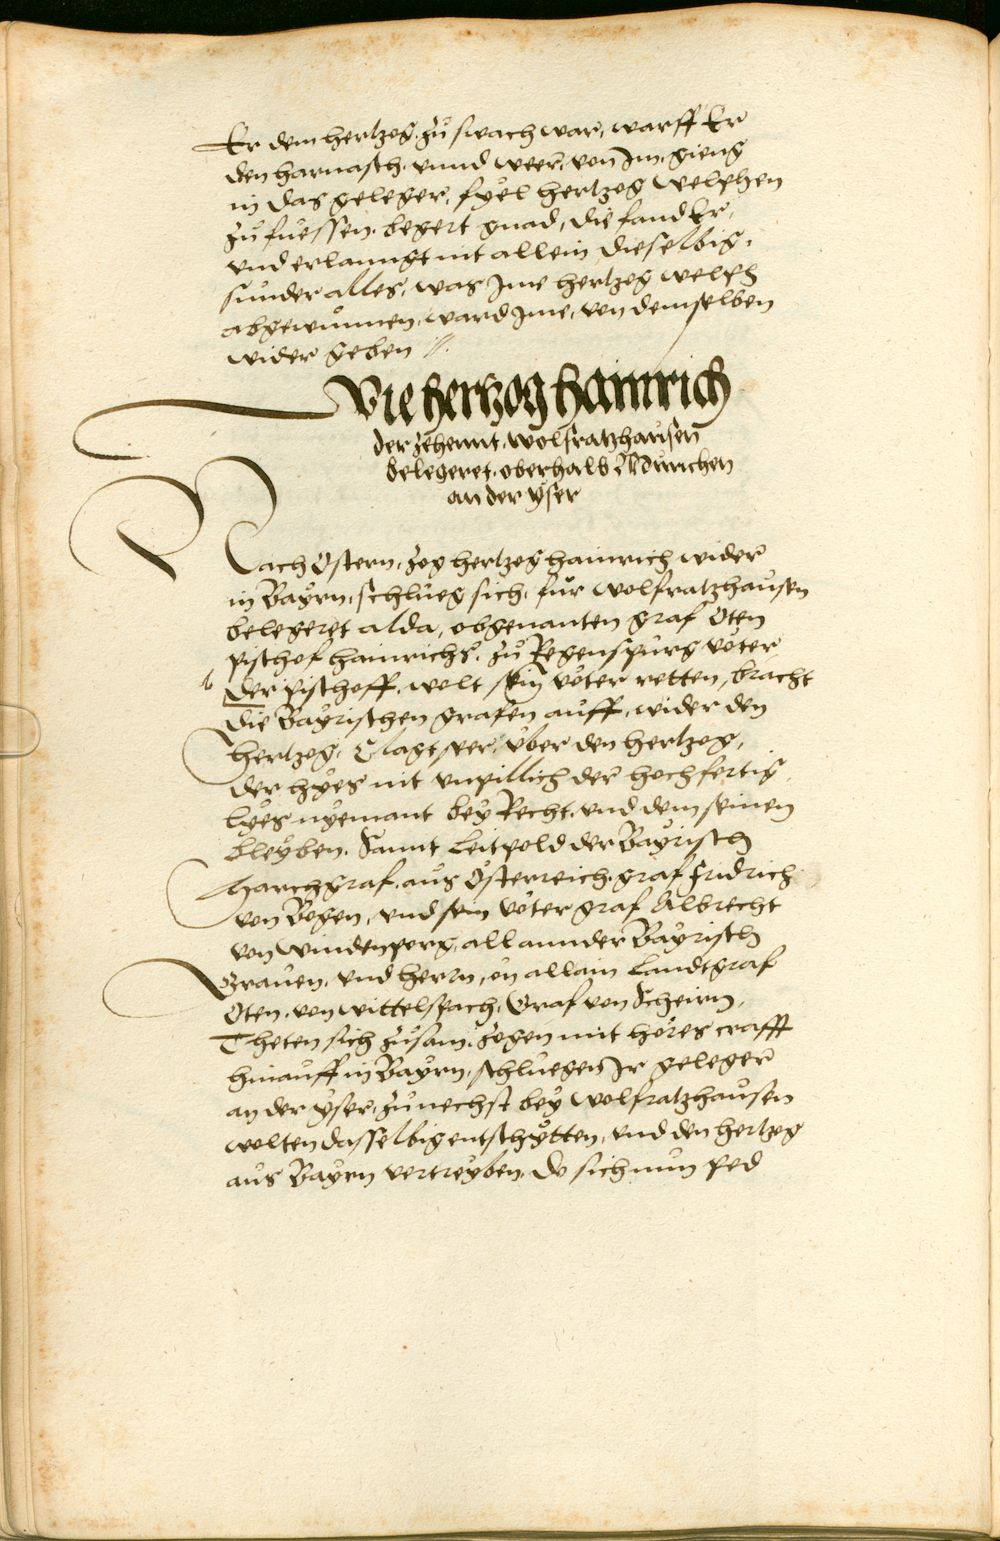 Er dem hertzog zu swach war, warff Er
den harnasch, vnnd weer, von Im, gieng
in das geleger, fyel hertzog Welphen
zu fuessen, begert gnad, die fand Er,
vnd erlanngt nit allein dieselbig,
sunder alles, was Ime hertzog Welph
abgewunnen, ward Ime, von demselben
wider geben
Wie hertzog hainrich
der zehennt, wolfratzhausen
belegeret, oberhalb München
an der yser
Nach Ostern, zog hertzog hainrich wider
in Bayrn, schlueg sich, für wolfratzhausen
belegeret alda, obgenanten graf Oten
pischof hainrichs, zu Regenspurg vöter
Der pischoff, wolt sein vöter retten, bracht
die Bayrischen grafen auff, wider den
hertzog, Clagt seer, über den hertzog,
der hyes nit vnpillich der hochfertig,
lyes nyemant bey Recht, vnd dem seinen
bleyben. Sannt Leitpold der Bayrisch
Marchgraf, aus Österreich, graf Fridrich
von Bogen, vnd sein vöter graf Albrecht
von windenperg, all annder Bayrisch
Grauen, vnd herrn, on allain Landtgraf
Oten, von wittelspach, Graf von Scheirn,
Theten sich zusam, zogen mit höres crafft
hinauff in Bayrn, schluegen Ir geleger
an der yser, zunechst bey wolfratzhausen
wolten dasselbig entschytten, vnd den hertzog
aus Bayrn vertreyben, do sich nun ped